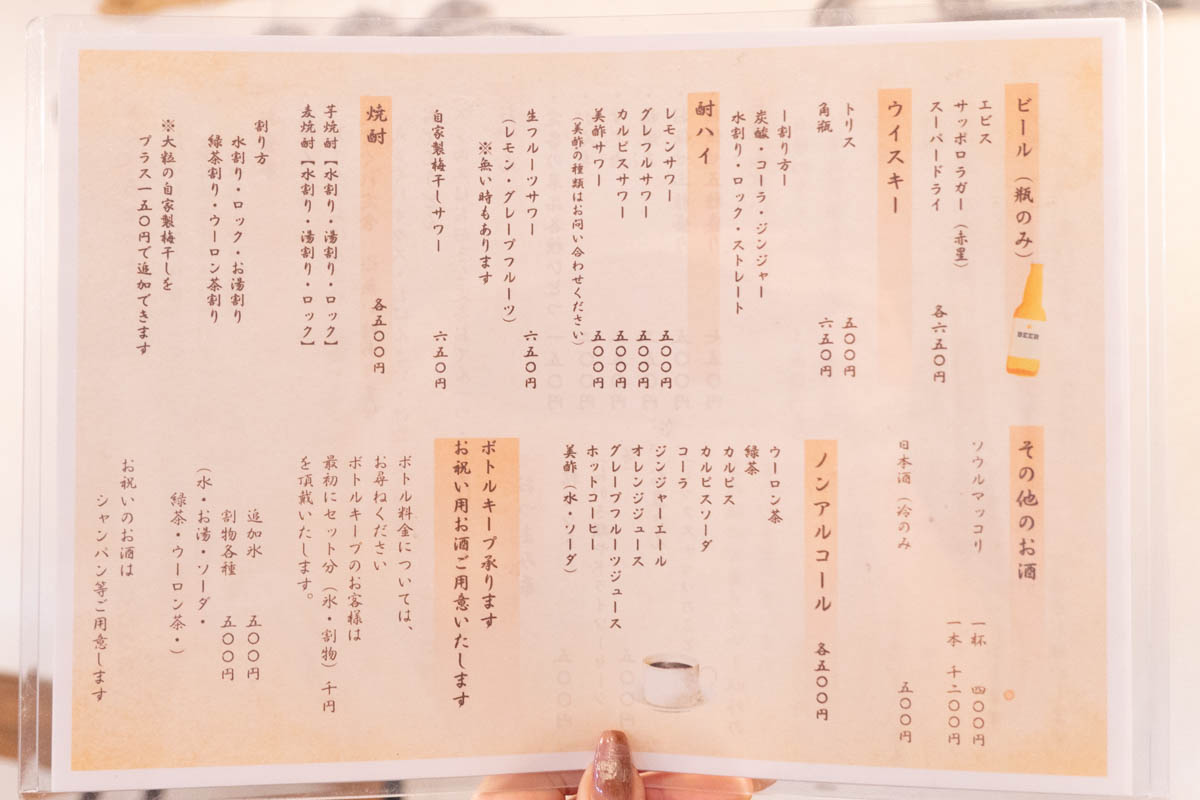 ビール（瓶のみ）
エビス
サッポロラガー（赤星）
スーパードライ
各六五〇円
BEER
ウイスキー
トリス 五〇〇円
角瓶 六五〇円
ー割り方ー
炭酸・コーラ・ジンジャー
水割り・ロック・ストレート
酎ハイ
レモンサワー 五〇〇円
グレフルサワー 五〇〇円
カルピスサワー 五〇〇円
美酢サワー 五〇〇円
（美酢の種類はお問い合わせください）
生フルーツサワー 六五〇円
（レモン・グレープフルーツ）
※無い時もあります
自家製梅干しサワー 六五〇円
焼酎 各五〇〇円
芋焼酎【水割り・湯割り・ロック】
麦焼酎【水割り・湯割り・ロック】
割り方
水割り・ロック・お湯割り
緑茶割り・ウーロン茶割り
※大粒の自家製梅干しを
プラス一五〇円で追加できます
その他のお酒
ソウルマッコリ 一杯 四〇〇円
一本 千二〇〇円
日本酒（冷のみ 五〇〇円
ノンアルコール 各五〇〇円
ウーロン茶
緑茶
カルピス
カルピスソーダ
コーラ
ジンジャーエール
オレンジジュース
グレープフルーツジュース
ホットコーヒー
美酢（水・ソーダ）
ボトルキープ承ります
お祝い用お酒ご用意いたします
ボトル料金については、
お尋ねください
ボトルキープのお客様は
最初にセット分（氷・割物）千円
を頂戴いたします。
追加氷 五〇〇円
割物各種 五〇〇円
（水・お湯・ソーダ・
緑茶・ウーロン茶・）
お祝いのお酒は
シャンパン等ご用意します